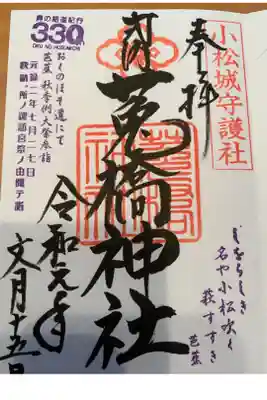 小松城守護社
奉拝
しをらしき
名や小松吹く
萩すすき
芭蕉
莵橋神社
令和元年
文月十五日
奥の細道紀行
330
OKU NO HOSOMICHI
おくのほそ道にて
芭蕉 秋季例大祭参詣
元禄二年七月二七日
快晴、所ノ諏訪宮祭ノ由聞テ詣